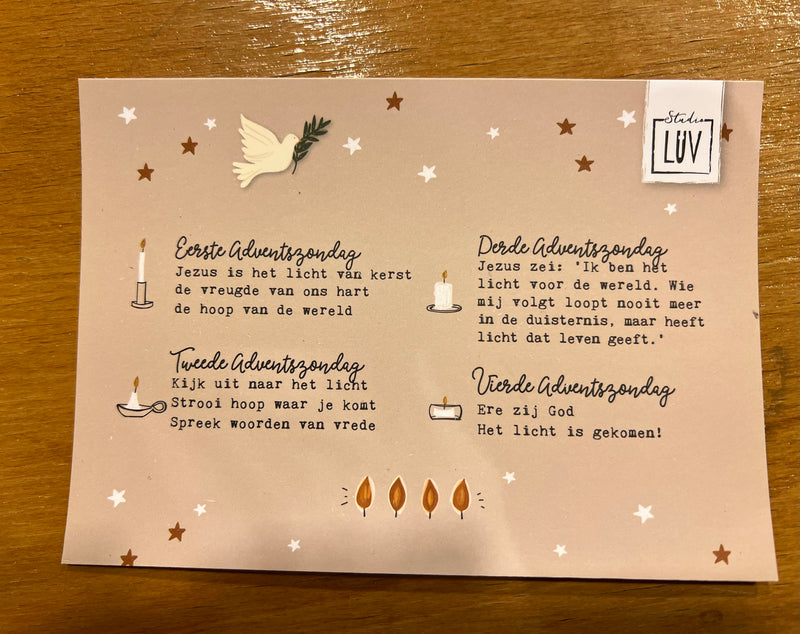 Studio
LÜV
Eerste Adventszondag
Jezus is het licht van kerst
de vreugde van ons hart
de hoop van de wereld
Tweede Adventszondag
Kijk uit naar het licht
Strooi hoop waar je komt
Spreek woorden van vrede
Derde Adventszondag
Jezus zei: 'Ik ben het
licht voor de wereld. Wie
mij volgt loopt nooit meer
in de duisternis, maar heeft
licht dat leven geeft.'
Vierde Adventszondag
Ere zij God
Het licht is gekomen!